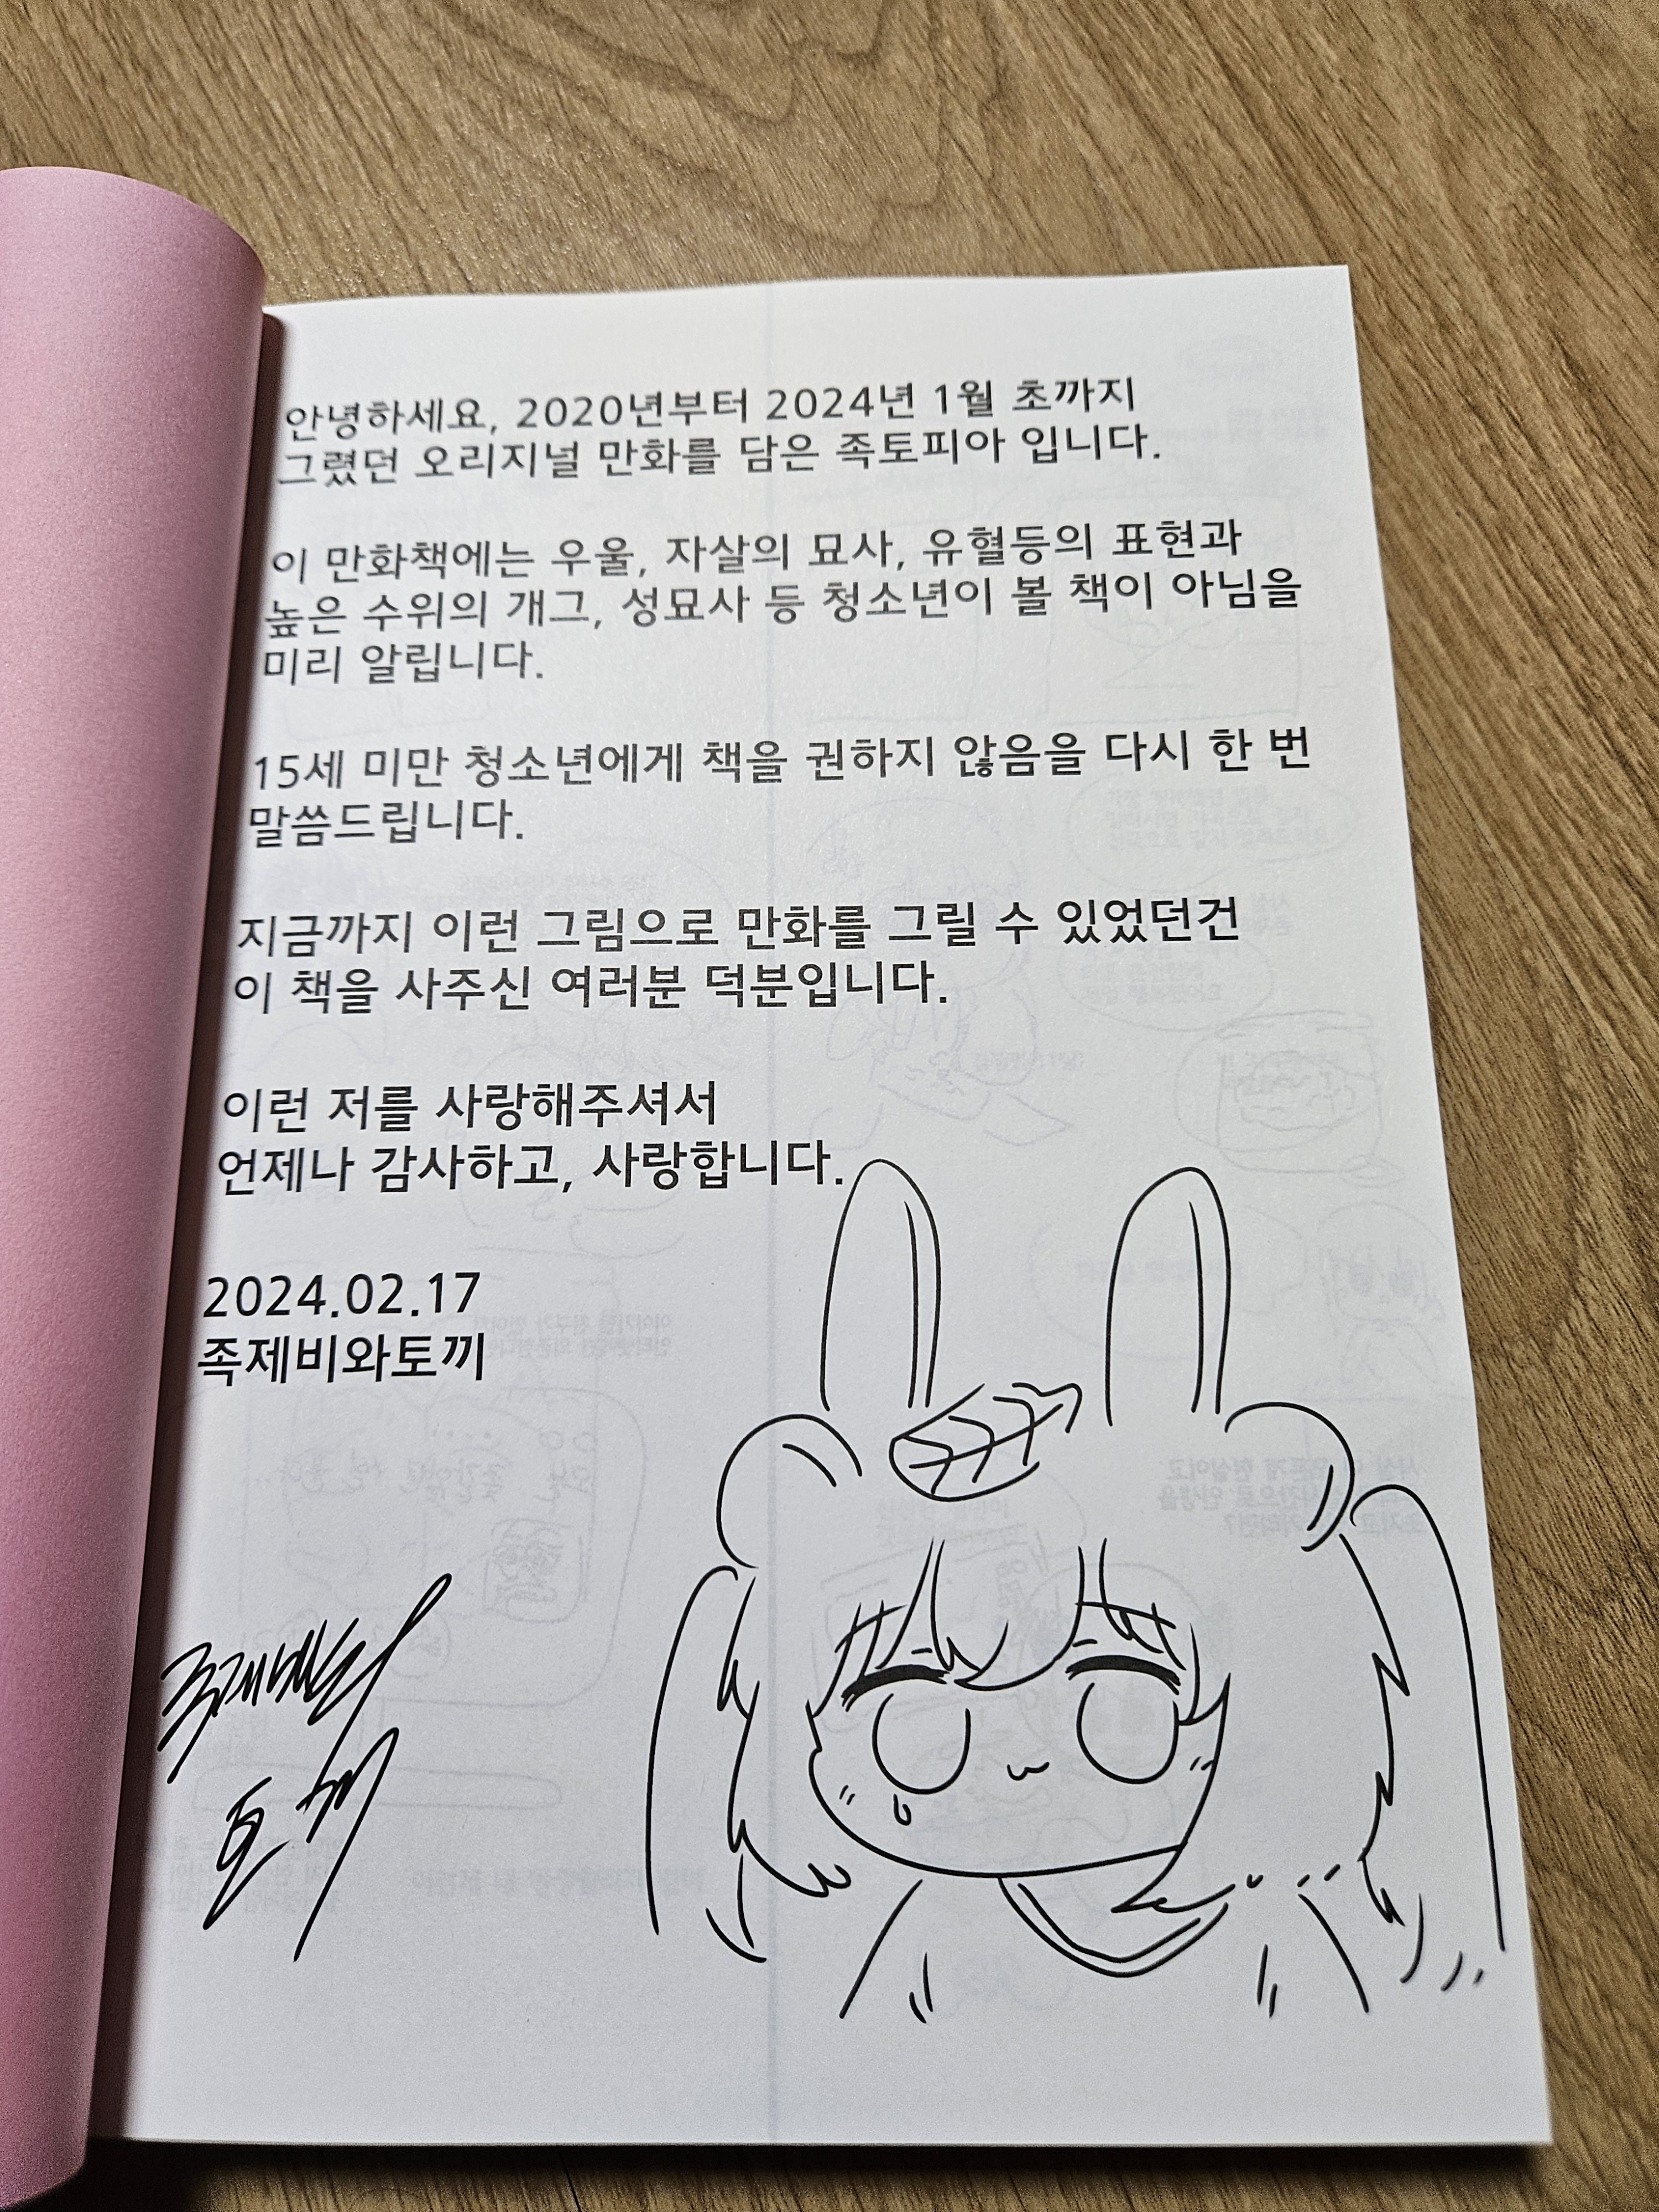 안녕하세요, 2020년부터 2024년 1월 초까지
그렸던 오리지널 만화를 담은 족토피아 입니다.
이 만화책에는 우울, 자살의 묘사, 유혈등의 표현과
높은 수위의 개그, 성묘사 등 청소년이 볼 책이 아님을
미리 알립니다.
15세 미만 청소년에게 책을 권하지 않음을 다시 한 번
말씀드립니다.
지금까지 이런 그림으로 만화를 그릴 수 있었던건
이 책을 사주신 여러분 덕분입니다.
이런 저를 사랑해주셔서
언제나 감사하고, 사랑합니다.
2024.02.17
족제비와토끼